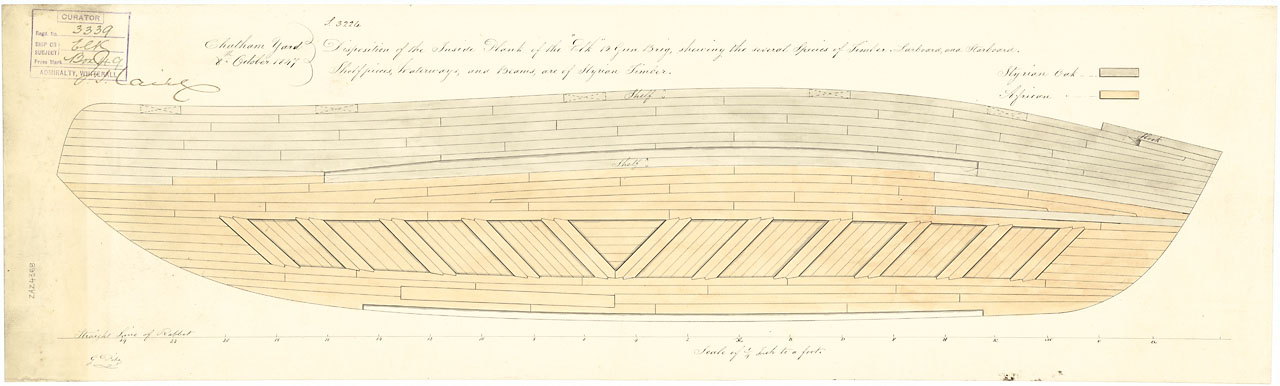 CURATOR
Regd. No. 3339
SHIP OR SUBJECT Elk
From Mark Box 49
ADMIRALTY, WHITEHALL
S. 3224
Chatham Yard
8th October 1847
Disposition of the Inside Plank of the "Elk" 12 Gun Brig, shewing the several Species of Timber Larboard, and Starboard.
Shelfpieces, Waterways, and Beams, are of Styrian Timber.
Styrian Oak
African
Shelf
Shelf
ZAZ4588
Straight Line of Rabbet
Scale of 1/4 Inch to a foot.